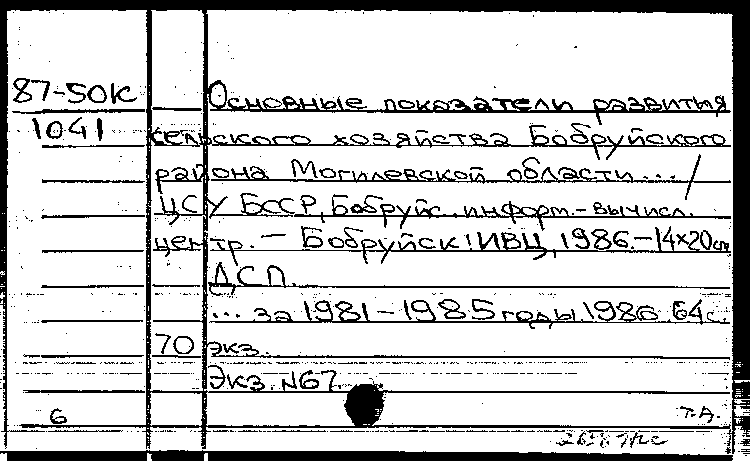 87-50К Основные показатели развития
1041 сельского хозяйства Бобруйского
района Могилевской области... /
ЦСУ БССР, Бобруйс. информ.-вычисл.
центр. — Бобруйск: ИВЦ, 1986.-14×20см
ДСП.
... за 1981-1985 годы. 1986. 64с.
70 экз.
Экз. №67.
6 Т.А.